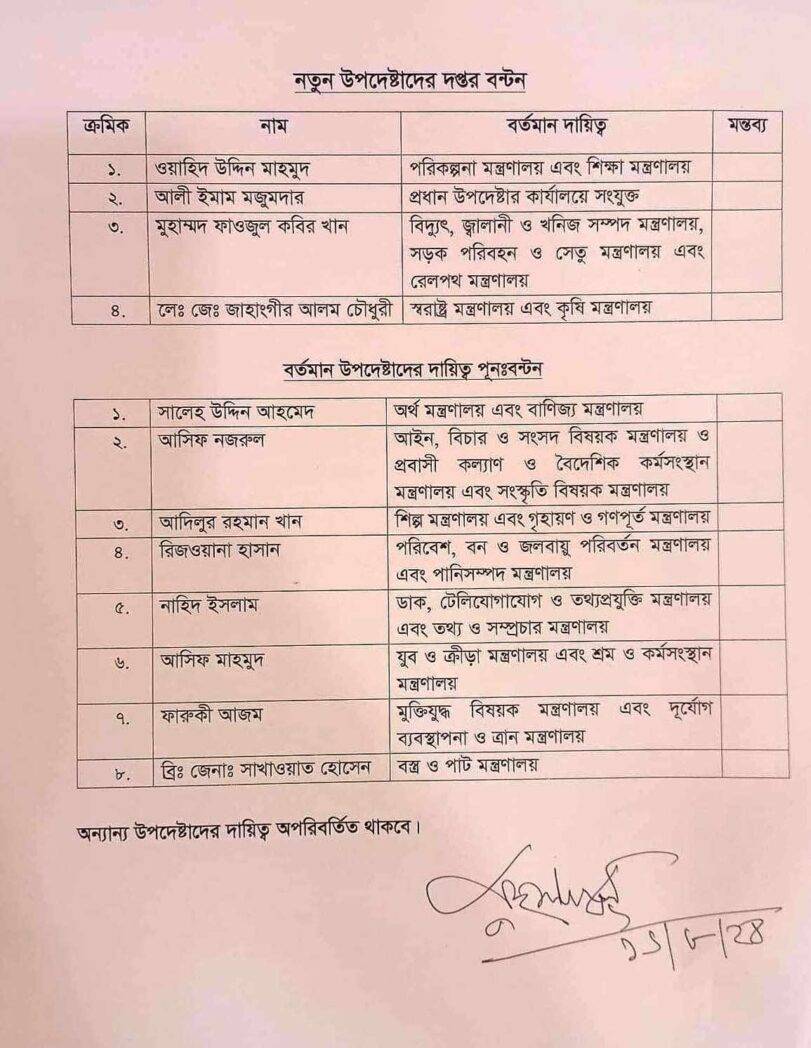 নতুন উপদেষ্টাদের দপ্তর বন্টন
ক্রমিক নাম বর্তমান দায়িত্ব মন্তব্য
১. ওয়াহিদ উদ্দিন মাহমুদ পরিকল্পনা মন্ত্রণালয় এবং শিক্ষা মন্ত্রণালয়
২. আলী ইমাম মজুমদার প্রধান উপদেষ্টার কার্যালয়ে সংযুক্ত
৩. মুহাম্মদ ফাওজুল কবির খান বিদ্যুৎ, জ্বালানী ও খনিজ সম্পদ মন্ত্রণালয়,
সড়ক পরিবহন ও সেতু মন্ত্রণালয় এবং
রেলপথ মন্ত্রণালয়
৪. লেঃ জেঃ জাহাংগীর আলম চৌধুরী স্বরাষ্ট্র মন্ত্রণালয় এবং কৃষি মন্ত্রণালয়
বর্তমান উপদেষ্টাদের দায়িত্ব পুনঃবন্টন
১. সালেহ উদ্দিন আহমেদ অর্থ মন্ত্রণালয় এবং বাণিজ্য মন্ত্রণালয়
২. আসিফ নজরুল আইন, বিচার ও সংসদ বিষয়ক মন্ত্রণালয় ও
প্রবাসী কল্যাণ ও বৈদেশিক কর্মসংস্থান
মন্ত্রণালয় এবং সংস্কৃতি বিষয়ক মন্ত্রণালয়
৩. আদিলুর রহমান খান শিল্প মন্ত্রণালয় এবং গৃহায়ণ ও গণপূর্ত মন্ত্রণালয়
৪. রিজওয়ানা হাসান পরিবেশ, বন ও জলবায়ু পরিবর্তন মন্ত্রণালয়
এবং পানিসম্পদ মন্ত্রণালয়
৫. নাহিদ ইসলাম ডাক, টেলিযোগাযোগ ও তথ্যপ্রযুক্তি মন্ত্রণালয়
এবং তথ্য ও সম্প্রচার মন্ত্রণালয়
৬. আসিফ মাহমুদ যুব ও ক্রীড়া মন্ত্রণালয় এবং শ্রম ও কর্মসংস্থান
মন্ত্রণালয়
৭. ফারুকী আজম মুক্তিযুদ্ধ বিষয়ক মন্ত্রণালয় এবং দূর্যোগ
ব্যবস্থাপনা ও ত্রান মন্ত্রণালয়
৮. ব্রিঃ জেনাঃ সাখাওয়াত হোসেন বস্ত্র ও পাট মন্ত্রণালয়
অন্যান্য উপদেষ্টাদের দায়িত্ব অপরিবর্তিত থাকবে।